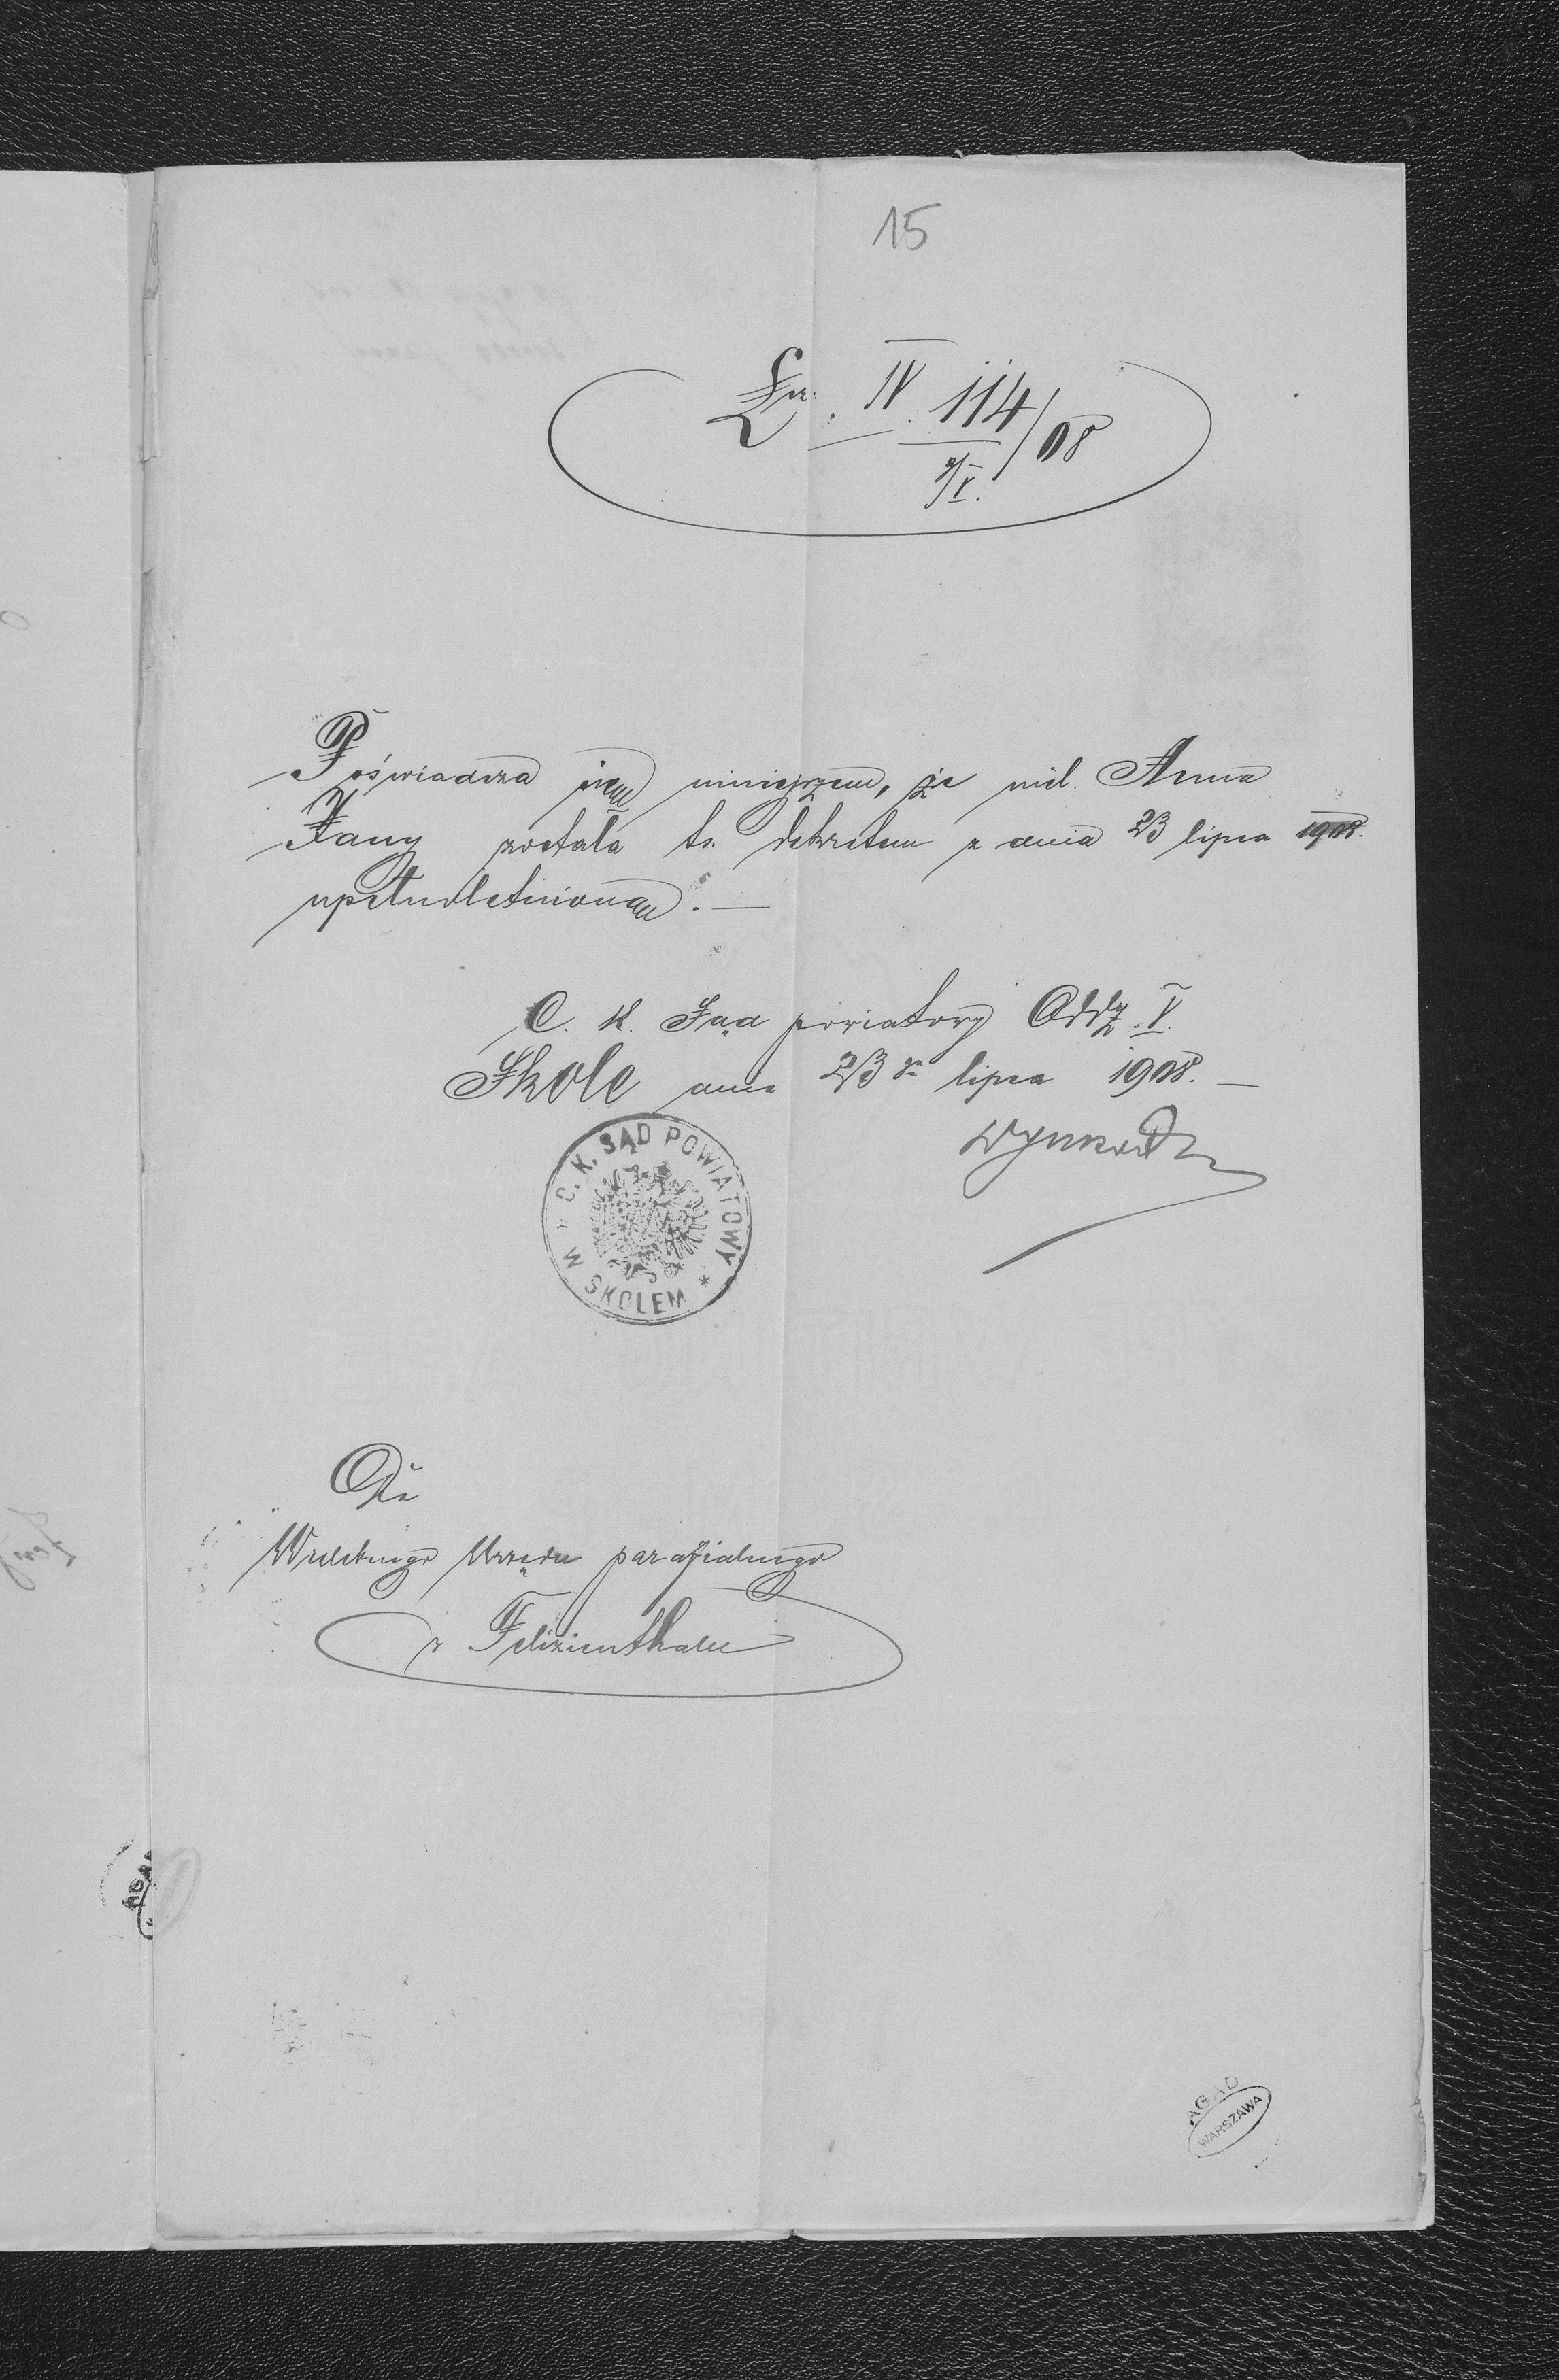 15
Lcz. IV. 114/08
9/V.
Poświadcza się niniejszem, że niel. Anna
Jany została ts. dekretem z dnia 23 lipca 1908.
upełnoletnioną. —
C. K. Sąd powiatowy Oddz. V.
Skole dnia 23go lipca 1908. —
C. K. SĄD POWIATOWY
W SKOLEM
Do
Wielebnego Urzędu parafialnego
z Felizienthalu
AGAD
WARSZAWA